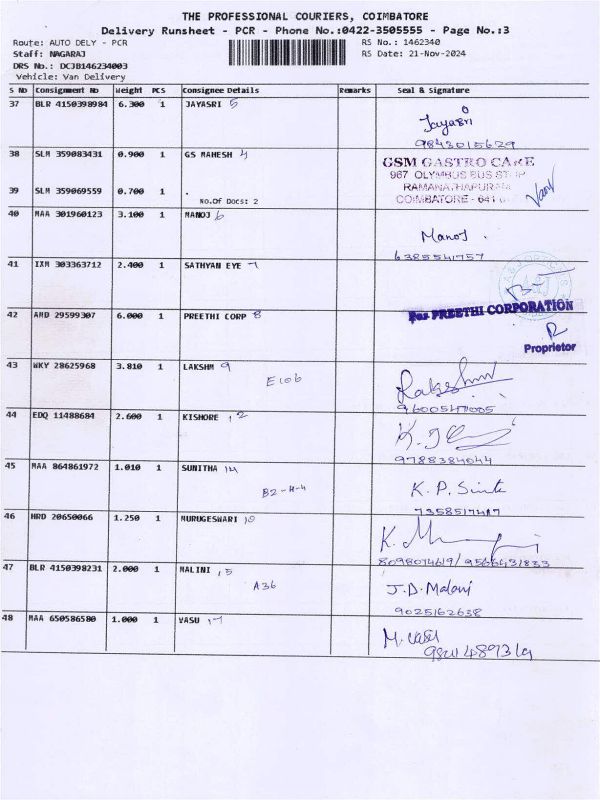 THE PROFESSIONAL COURIERS, COIMBATORE
Delivery Runsheet - PCR - Phone No.:0422-3505555 - Page No.:3
Route: AUTO DELY - PCR RS No.: 1462340
Staff: NAGARAJ RS Date: 21-Nov-2024
DRS No.: DCJB146234003
Vehicle: Van Delivery
S No Consignment No Weight PCS Consignee Details Remarks Seal & Signature
37 BLR 4150398984 6.300 1 JAYASRI 5 Jayasri
9843015629
38 SLM 359083431 0.900 1 GS MAHESH 4 GSM GASTRO CARE
967 OLYMBUS BUS STOP
39 SLM 359069559 0.700 1 . RAMANATHAPURAM
No.Of Docs: 2 COIMBATORE - 641
40 MAA 301960123 3.100 1 MANOJ 6
Manoj .
6385541757
41 IXM 303363712 2.400 1 SATHYAN EYE 7
42 AMD 29599307 6.000 1 PREETHI CORP 8 For PREETHI CORPORATION
Proprietor
43 WKY 28625968 3.810 1 LAKSHM 9
E106
9600541005
44 EDQ 11488684 2.600 1 KISHORE 12
9788384044
45 MAA 864861972 1.010 1 SUNITHA 14
B2-H-4 K. P. 
7358517417
46 HRD 20650066 1.250 1 MURUGESWARI 10 K.
8098074619/9566431833
47 BLR 4150398231 2.000 1 MALINI 15
A36 J.D. Malani
9025162638
48 MAA 650586580 1.000 1 VASU 17 M. Vasu